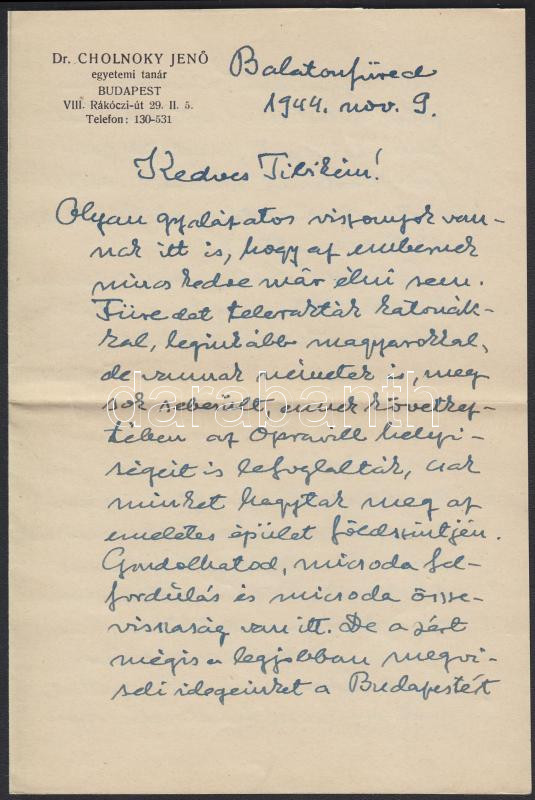 Dr. CHOLNOKY JENŐ
egyetemi tanár
BUDAPEST
VIII. Rákóczi-út 29. II. 5.
Telefon: 130-531
Balatonfüred
1944. nov. 9.
Kedves Tibikém!
Olyan gyalázatos viszonyok van-
nak itt is, hogy az embernek
nincs kedve már élni sem.
Füredet telerakták katonák-
kal, leginkább magyarokkal,
de vannak németek is, meg
sok sebesült, ennek következ-
tében az helyi-
ségeit is lefoglalták, csak
minket hagytak meg az
emeletes épület földszintjén.
Gondolhatod, micsoda fel-
fordulás és micsoda össze-
visszaság van itt. De azért
mégis a legjobban megvi-
seli idegeinket a Budapestért
darabanth